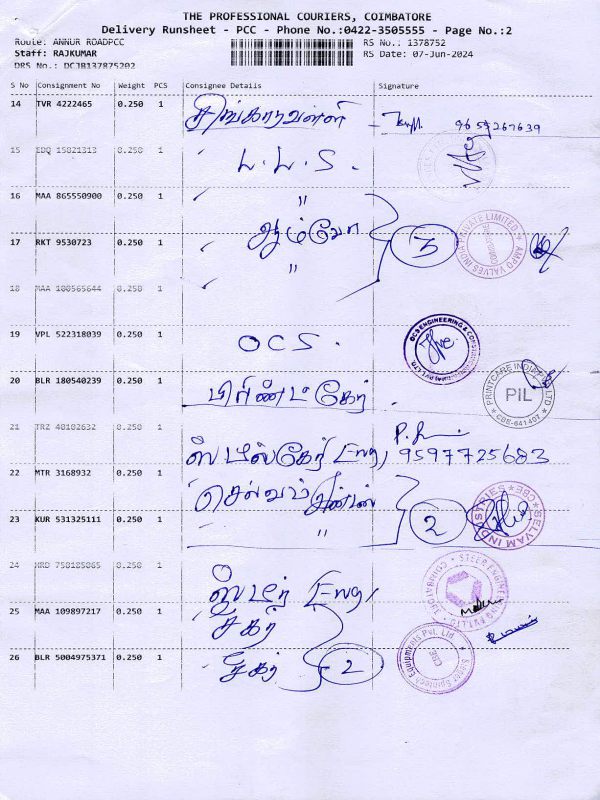 THE PROFESSIONAL COURIERS, COIMBATORE
Delivery Runsheet - PCC - Phone No.:0422-3505555 - Page No.:2
Route: ANNUR ROADPCC
RS No.: 1378752
Staff: RAJKUMAR
RS Date: 07-Jun-2024
DRS No.: DCJB137875202
S No Consignment No Weight PCS Consignee Details Signature
14 TVR 4222465 0.250 1 சிங்காரவள்ளி
15 EDQ 15821313 0.250 1 L.L.S.
16 MAA 865550900 0.250 1 "
17 RKT 9530723 0.250 1 ஆம்போ 3
"
AMPO VALVES INDIA PRIVATE LIMITED
18 MAA 108565644 0.250 1
19 VPL 522318039 0.250 1 OCS.
OCS ENGINEERING &
20 BLR 180540239 0.250 1 பிரிண்ட்கேர்
PRINTCARE INDIA
PIL
CBE-641407
21 TRZ 48182632 0.250 1
ஸ்டீல்கேர் Eng, 9597725683
22 MTR 3168932 0.250 1 செல்வம் இன்டஸ் 2
SELVAM INDUSTRIES CBE
23 KUR 531325111 0.250 1 "
24 HRD 758185865 0.250 1
ஸ்டீர் Eng,
25 MAA 109897217 0.250 1 சகர்
26 BLR 5004975371 0.250 1 சகர் 2
Equipments Pvt. Ltd